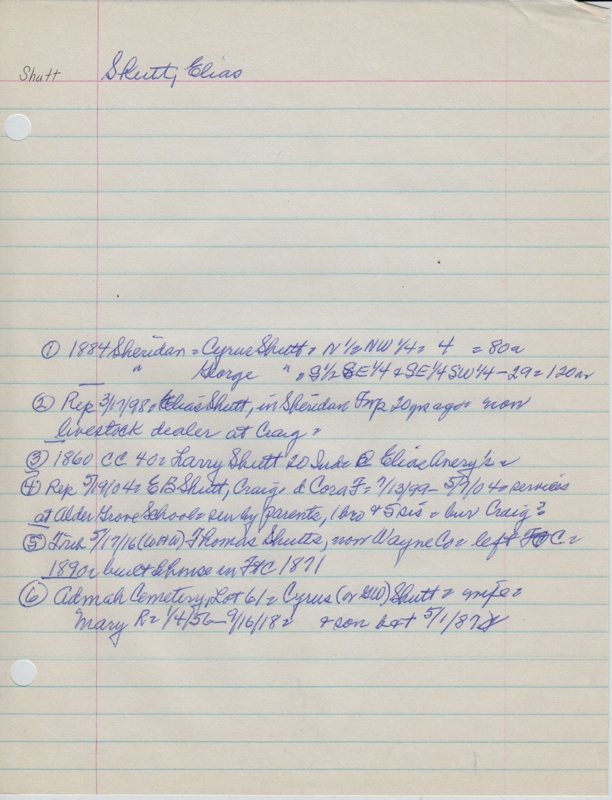 Shutt Shutt, Elias
① 1884 Sheridan = Cyrus Shutt, N ½ NW ¼ = 4 = 80a
" George " , S ½ SE ¼ & SE ¼ SW ¼ - 29 = 120a
② Rep 3/17/98, Elias Shutt, in Sheridan Twp 20 yrs ago = now
livestock dealer at Craig =
③ 1860 CC 40 = Larry Shutt 20 Ind = @ Elias Avery's =
④ Rep 5/19/04 = E B Shutt, Craig = d Cora F = 7/13/99 - 5/7/04 = services
at Alder Grove School = sur by parents, 1 bro & 5 sis = bur Craig?
⑤ Trib 5/17/16 Thomas Shutts, now Wayne Co = left Ft C =
1890 = built 1st house in Ft C 1871
⑥ Admah Cemetery, Lot 61 = Cyrus (or GW) Shutt = wife =
Mary R = 1/4/56 - 9/16/18 = & son b & d 5/1/87